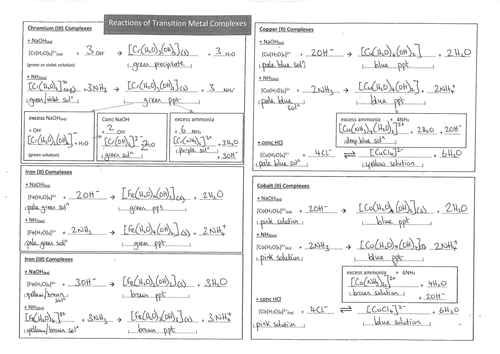 Reactions of Transition Metal Complexes
Chromium (III) Complexes
+ NaOH(aq)
[Cr(H₂O)₆]³⁺(aq) + 3 OH⁻ → [Cr(H₂O)₃(OH)₃](s) + 3 H₂O
(green or violet solution) green precipitate
+ NH₃(aq)
[Cr(H₂O)₆]³⁺(aq) + 3NH₃ → [Cr(H₂O)₃(OH)₃](s) + 3 NH₄⁺
green/violet solⁿ green ppt
excess NaOH(aq)
+ OH⁻
[Cr(H₂O)₂(OH)₄]⁻ + H₂O
(green solution)
Conc NaOH
+ 2 OH⁻
[Cr(OH)₆]³⁻ 2H₂O
green solⁿ
excess ammonia
+ 6 NH₃
[Cr(NH₃)₆]³⁺ + 3H₂O
purple solⁿ + 3OH⁻
Iron (II) Complexes
+ NaOH(aq)
[Fe(H₂O)₆]²⁺(aq) + 2OH⁻ → [Fe(H₂O)₄(OH)₂](s) + 2H₂O
pale green solⁿ green ppt
+ NH₃(aq)
[Fe(H₂O)₆]²⁺(aq) + 2NH₃ → [Fe(H₂O)₄(OH)₂](s) + 2NH₄⁺
pale green solⁿ green ppt
Iron (III) Complexes
+ NaOH(aq)
[Fe(H₂O)₆]³⁺(aq) + 3OH⁻ → [Fe(H₂O)₃(OH)₃](s) + 3H₂O
yellow/brown solⁿ brown ppt
+ NH₃(aq)
[Fe(H₂O)₆]³⁺ + 3NH₃ → [Fe(H₂O)₃(OH)₃](s) + 3NH₄⁺
yellow/brown solⁿ brown ppt
Copper (II) Complexes
+ NaOH(aq)
[Cu(H₂O)₆]²⁺(aq) + 2OH⁻ → [Cu(H₂O)₄(OH)₂] + 2H₂O
pale blue solⁿ blue ppt
+ NH₃(aq)
[Cu(H₂O)₆]²⁺(aq) + 2NH₃ → [Cu(H₂O)₄(OH)₂](s) + 2NH₄⁺
pale blue solⁿ blue ppt
excess ammonia + 4NH₃
[Cu(NH₃)₄(H₂O)₂]²⁺ + 2H₂O + 2OH⁻
deep blue solⁿ
+ conc HCl
[Cu(H₂O)₆]²⁺(aq) + 4Cl⁻ ⇌ [CuCl₄]²⁻ + 6H₂O
pale blue solⁿ yellow solution
Cobalt (II) Complexes
+ NaOH(aq)
[Co(H₂O)₆]²⁺(aq) + 2OH⁻ → [Co(H₂O)₄(OH)₂](s) + 2H₂O
pink solution blue ppt
+ NH₃(aq)
[Co(H₂O)₆]²⁺(aq) + 2NH₃ → [Co(H₂O)₄(OH)₂](s) + 2NH₄⁺
pink solution blue ppt
excess ammonia + 6NH₃
[Co(NH₃)₆]²⁺ + 6H₂O
brown solution + 2OH⁻
+ conc HCl
[Co(H₂O)₆]²⁺(aq) + 4Cl⁻ ⇌ [CoCl₄]²⁻ + 6H₂O
pink solution blue solution